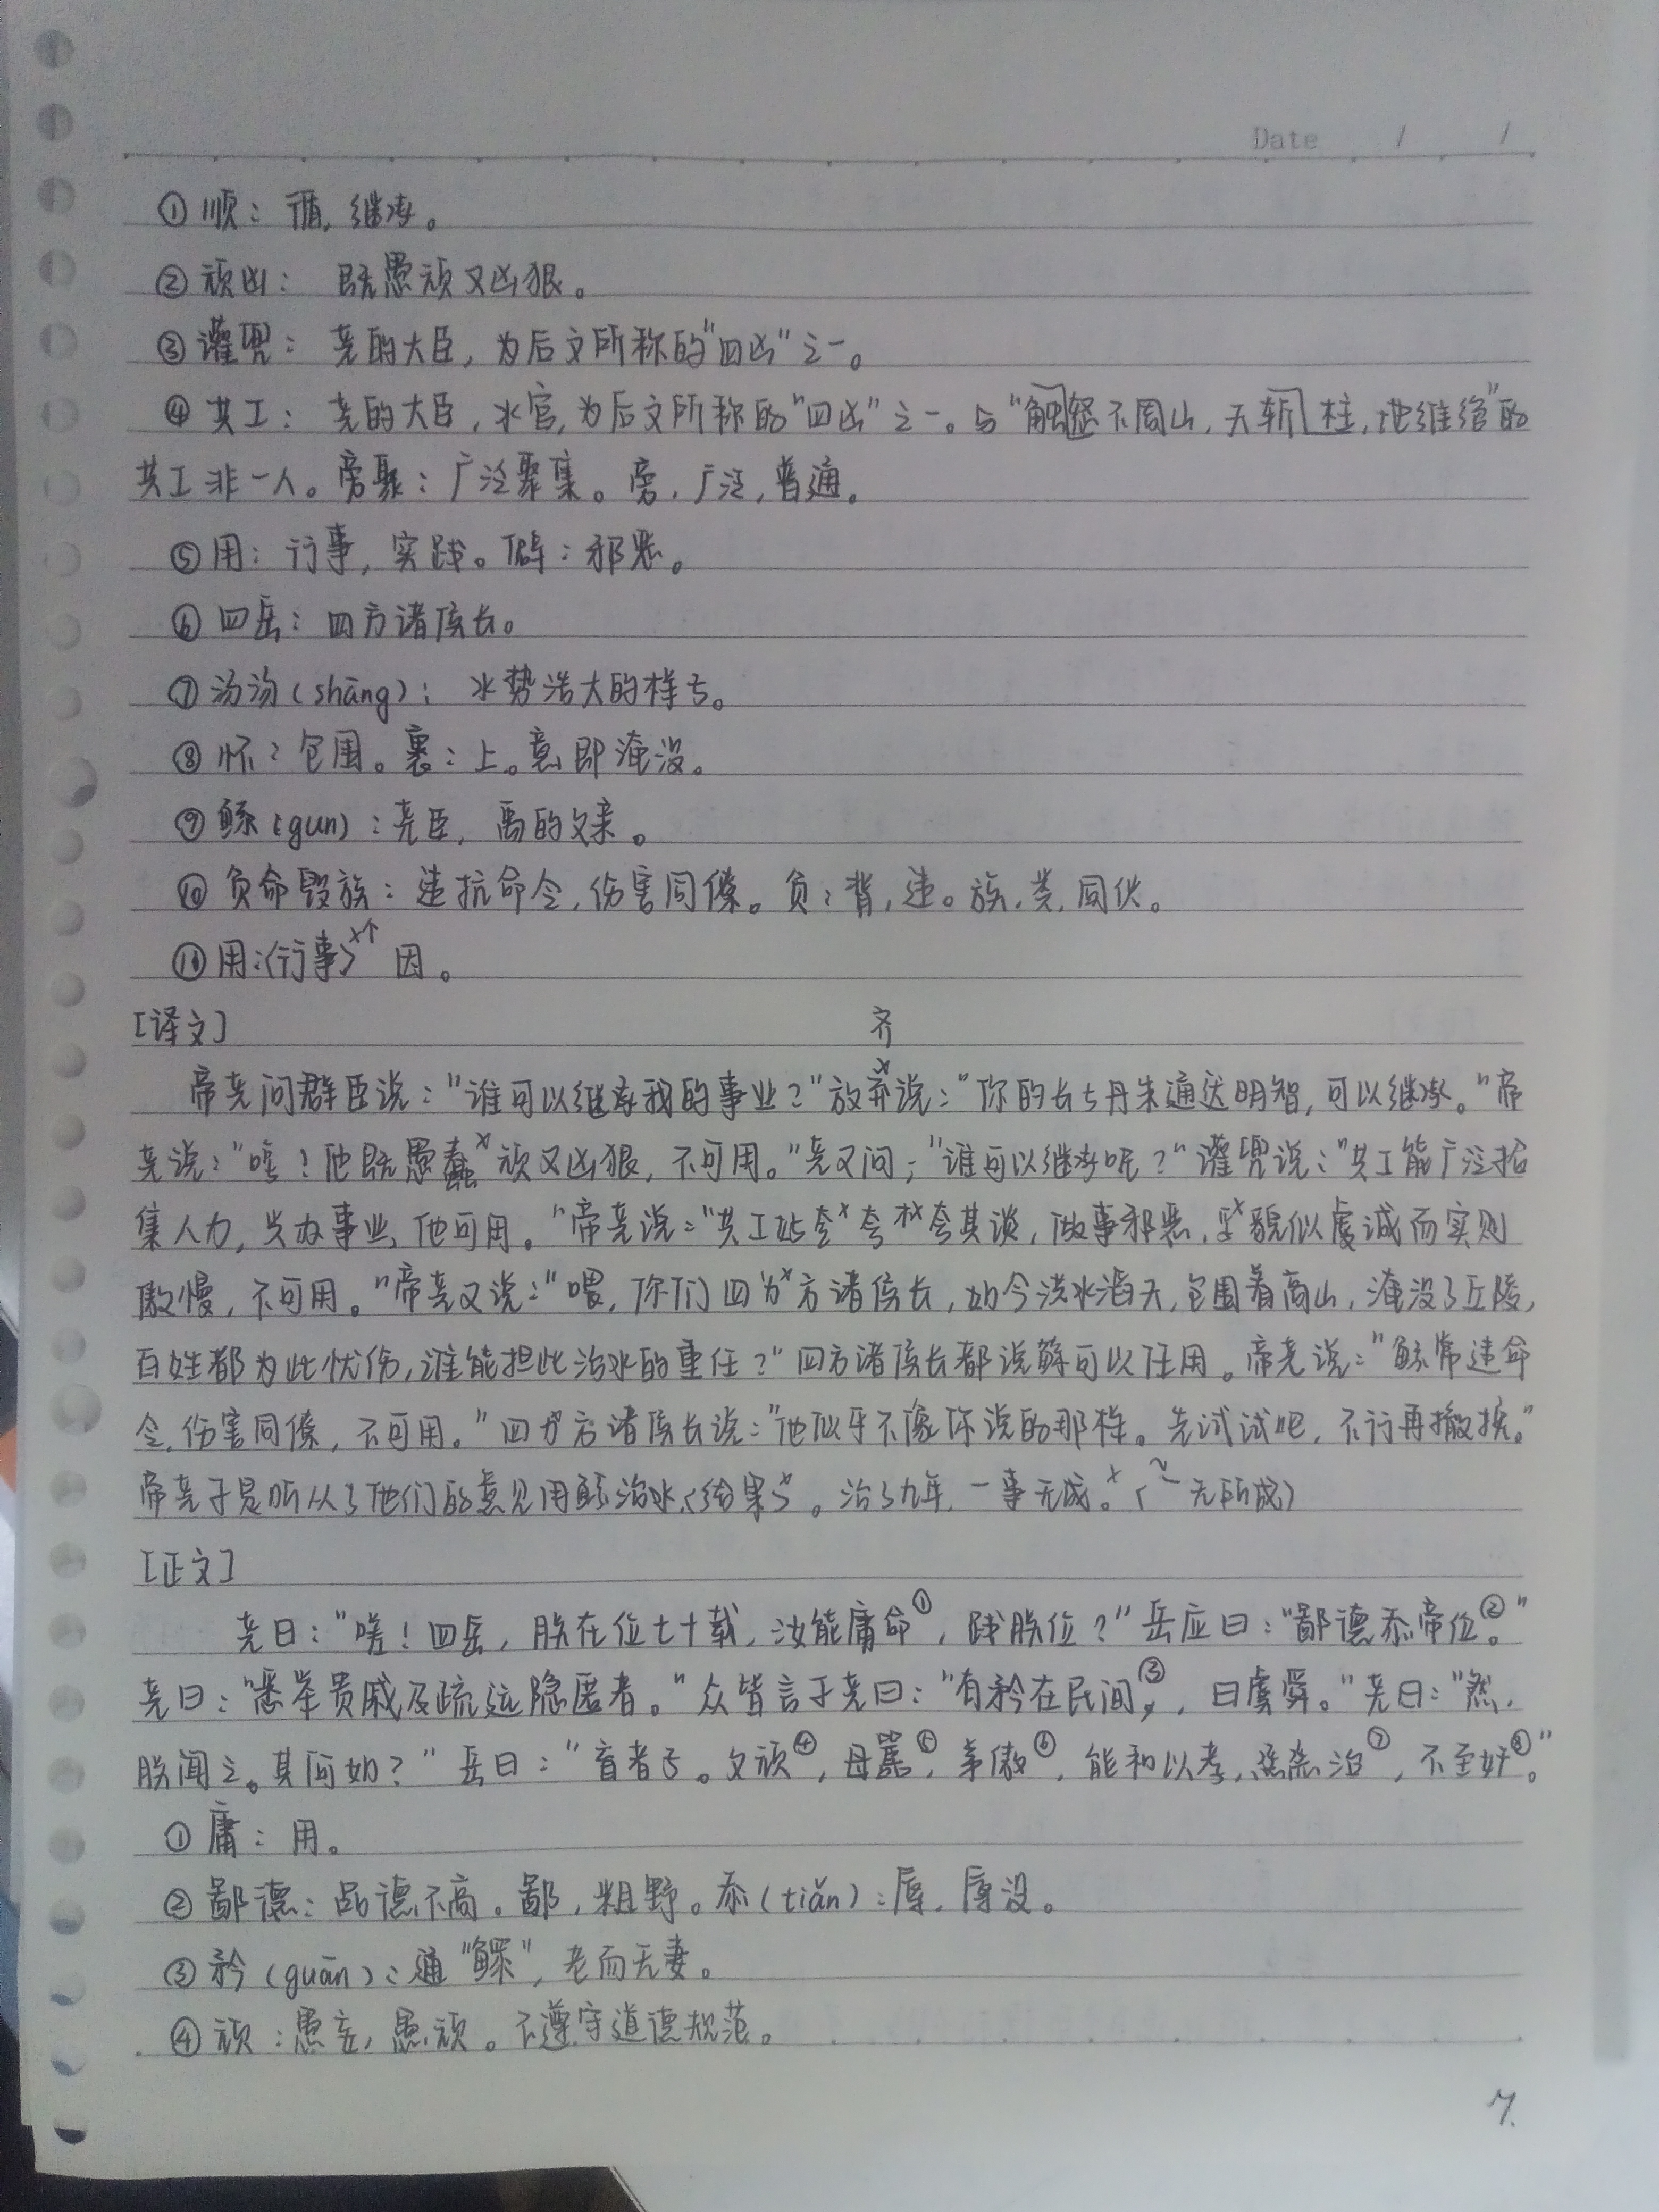 Date / /
①顺：循，继承。
②顽凶：既愚顽又凶狠。
③讙兜：尧的大臣，为后文所称的"四凶"之一。
④共工：尧的大臣，水官，为后文所称的"四凶"之一。与"触怒不周山，天斩柱，地维绝"的
共工非一人。旁聚：广泛聚集。旁，广泛，普通。
⑤用：行事，实践。僻：邪恶。
⑥四岳：四方诸侯长。
⑦汤汤(shāng)：水势浩大的样子。
⑧怀：包围。襄：上。意即淹没。
⑨鲧(gun)：尧臣，禹的父亲。
⑩负命毁族：违抗命令，伤害同僚。负：背，违。族，类，同伙。
⑪用：〈行事〉×↑因。
[译文]
齐
帝尧问群臣说："谁可以继承我的事业？"放弃×说："你的长子丹朱通达明智，可以继承。"帝
尧说："嗟！他既愚蠢×顽又凶狠，不可用。"尧又问："谁可以继承呢？"讙兜说："共工能广泛招
集人力，兴办事业，他可用。"帝尧说："共工×夸×夸其谈，做事邪恶，×貌似虔诚而实则
傲慢，不可用。"帝尧又说："喂，你们四×方诸侯长，如今洪水滔天，包围着高山，淹没了丘陵，
百姓都为此忧伤，谁能担此治水的重任？"四方诸侯长都说鲧可以任用。帝尧说："鲧常违命
令，伤害同僚，不可用。"四方诸侯长说："他似乎不像你说的那样。先试试吧，不行再撤换。"
帝尧于是听从了他们的意见用鲧治水，〈结果〉×。治了九年，一事无成。×（~无所成）
[正文]
尧曰："嗟！四岳，朕在位七十载，汝能庸命①，践朕位？"岳应曰："鄙德忝帝位②。"
尧曰："悉举贵戚及疏远隐匿者。"众皆言于尧曰："有矜在民间③，曰虞舜。"尧曰："然，
朕闻之。其何如？"岳曰："盲者子。父顽④，母嚚⑤，弟傲⑥，能和以孝，烝烝治⑦，不至奸⑧。"
①庸：用。
②鄙德：品德不高。鄙，粗野。忝(tiǎn)：辱，辱没。
③矜(guān)：通"鳏"，老而无妻。
④顽：愚妄，愚顽。不遵守道德规范。
7.